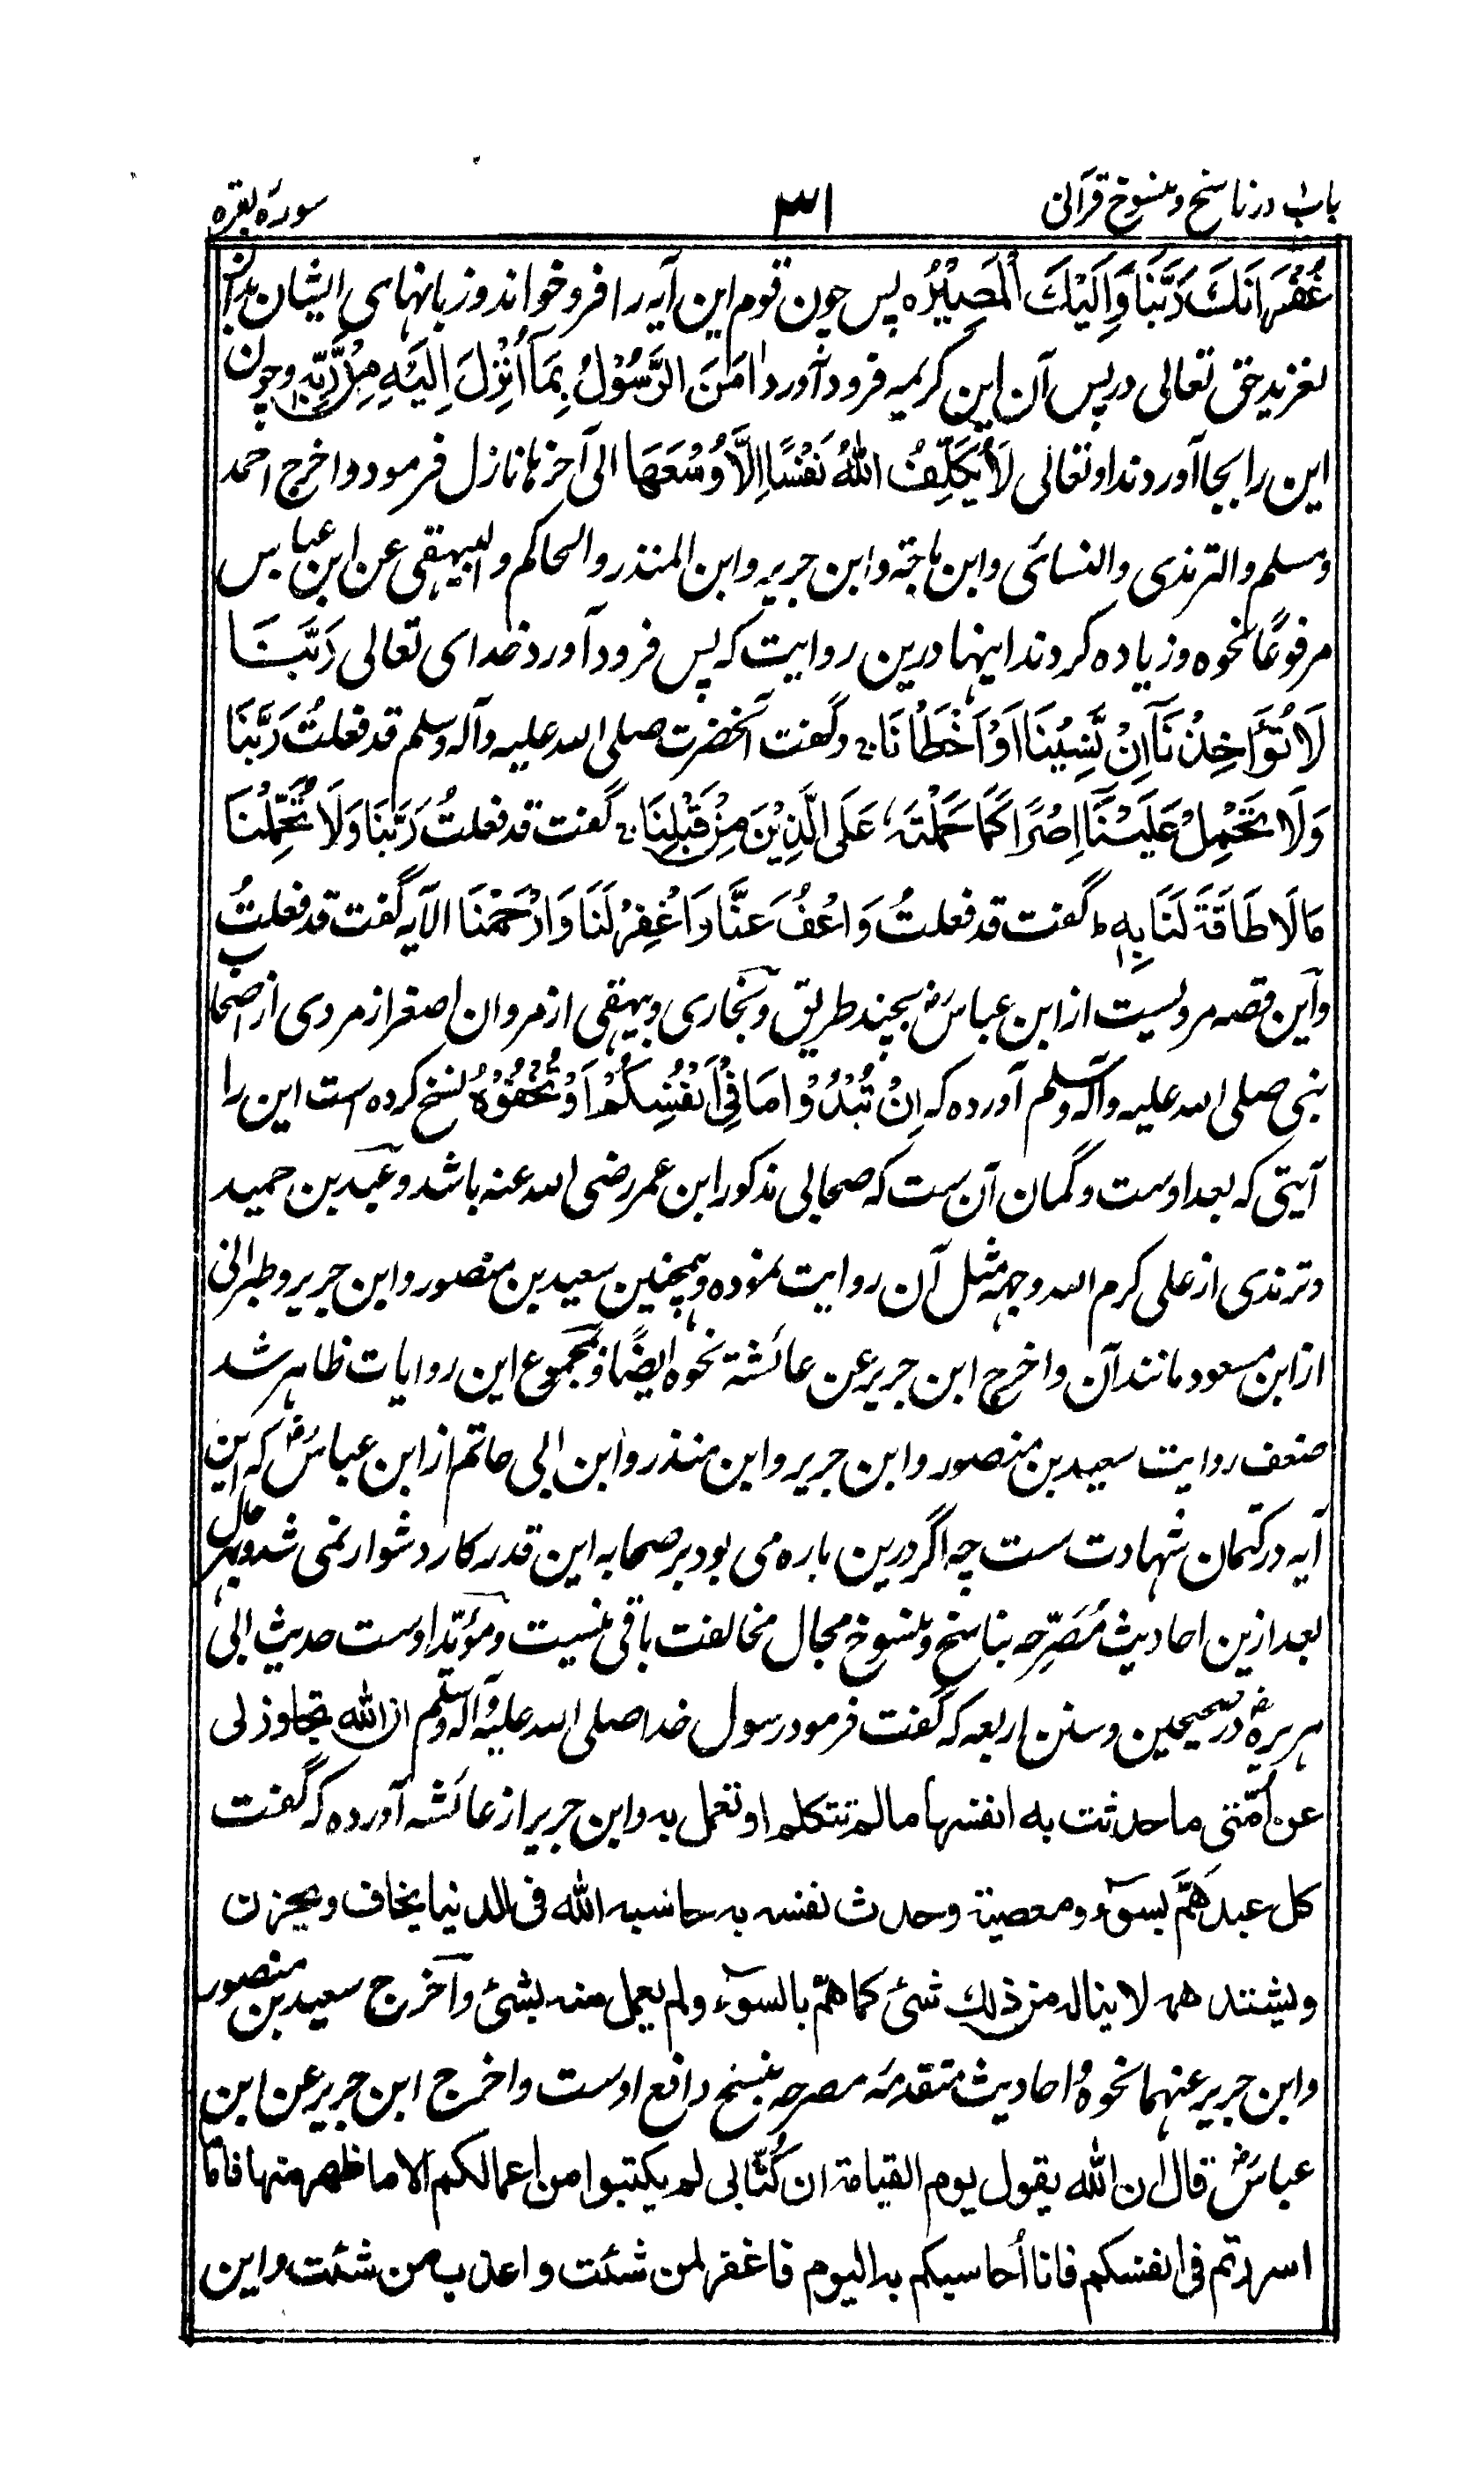 باب۱ در ناسخ و منسوخ قرآنی
۳۱
سورۂ بقره
غُفْرَانَكَ رَبَّنَا وَاِلَيْكَ الْمَصِيْرُ ہ پس چون قوم این آیه را فرو خواند و زبانهای ایشان بدان
بغزید حق تعالی در پس آن این کریمه فرود آورد اٰمَنَ الرَّسُوْلُ بِمَا اُنْزِلَ اِلَيْهِ مِنْ رَّبِّهٖ و چون
این را بجا آوردند او تعالی لَا يُكَلِّفُ اللّٰهُ نَفْسًا اِلَّا وُسْعَهَا الی آخرها نازل فرمود و اخرج احمد
ومسلم والترمذی والنسائی وابن ماجة وابن جریر وابن المنذر والحاکم والبیهقی عن ابن عباس
مرفوعًا نحوه وزیاده کردند اینها درین روایت که پس فرود آورد خدای تعالی رَبَّنَا
لَا تُؤَاخِذْنَآ اِنْ نَّسِيْنَا اَوْ اَخْطَاْنَا؞ وگفت آنحضرت صلی الله علیه وآله وسلم قد فعلتُ رَبَّنَا
وَلَا تَحْمِلْ عَلَيْنَا اِصْرًا كَمَا حَمَلْتَهٗ عَلَى الَّذِيْنَ مِنْ قَبْلِنَا؞ گفت قد فعلتُ رَبَّنَا وَلَا تُحَمِّلْنَا
مَا لَا طَاقَةَ لَنَا بِهٖ ط گفت قد فعلتُ وَاعْفُ عَنَّا وَاغْفِرْ لَنَا وَارْحَمْنَا الآیه گفت قد فعلتُ
وآین قصه مرویست از ابن عباسؓ بچند طریق وبخاری وبیهقی از مروان اصغر از مردی از اصحاب
نبی صلی الله علیه وآله وسلم آورده که اِنْ تُبْدُوْا مَا فِيْ اَنْفُسِكُمْ اَوْ تُخْفُوْهُ نسخ کرده است این را
آیتی که بعد اوست وگمان آن ست که صحابی مذکور ابن عمر رضی الله عنه باشد وعبد بن حمید
وترمذی از علی کرم الله وجهه مثل آن روایت نموده وهمچنین سعید بن منصور وابن جریر وطبرانی
از ابن مسعود مانند آن واخرج ابن جریر عن عائشة نحوه ایضًا وبمجموع این روایات ظاهر شد
ضعف روایت سعید بن منصور وابن جریر وابن منذر وابن ابی حاتم از ابن عباسؓ که این
آیه در کتمان شهادت ست چه اگر درین باره می بود بر صحابه این قدر کار دشوار نمی شد وبهر حال
بعد ازین احادیث مُصَرِّحه بناسخ ومنسوخ مجال مخالفت باقی نیست ومؤیّد اوست حدیث ابی
هریرهؓ در صحیحین وسنن اربعه که گفت فرمود رسول خدا صلی الله علیه وآله وسلم ان الله تجاوز لی
عن اُمّتی ما حدثت به انفسها ما لم تتکلم او تعمل به وابن جریر از عائشه آورده که گفت
کل عبد هَمَّ بسوٓء ومعصیة وحدث نفسه به حاسبه الله فی الدنیا یخاف ویحزن
ویشتد همه لا یناله من ذلك شئ کما همّ بالسوٓء ولم یعمل منه بشئ وآخرج سعید بن منصور
وابن جریر عنهما نحوهُ احادیث متقدمه مصرحه بنسخ دافع اوست واخرج ابن جریر عن ابن
عباسؓ قال ان الله یقول یوم القیامة ان کُتّابی لم یکتبوا من اعمالکم الا ما ظهر منها فاما
اسررتم فی انفسکم فانا اُحاسبکم به الیوم فاغفر لمن شئت واعذب من شئت واین